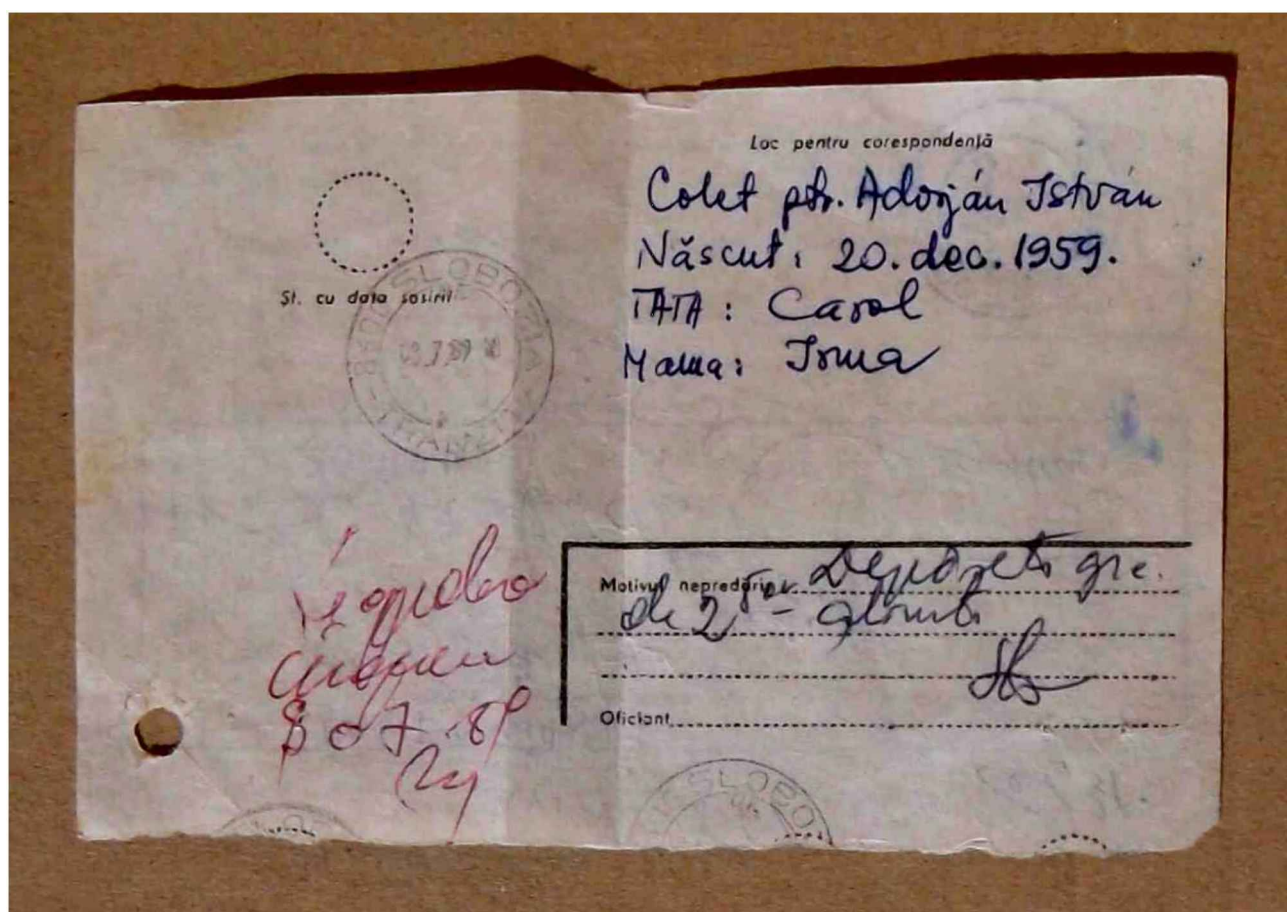 Loc pentru corespondență
Colet ptr. Adorján István
Născut: 20. dec. 1959.
TATA: Carol
Mama: Irma
Șt. cu data sosirii
SLOBOZIA
TRANZIT
Motivul nepredării Depășește gre.
de 2
Oficiant
07.89
SLOBO